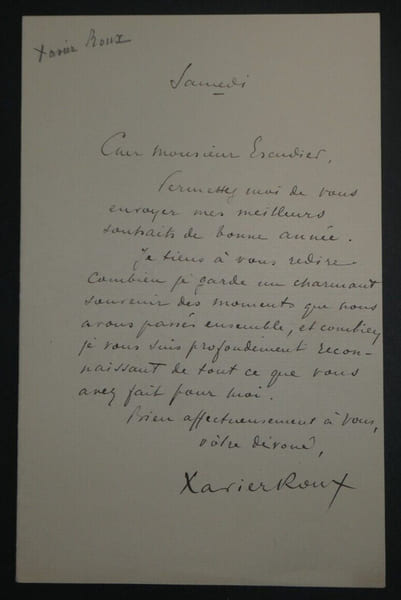 Xavier Roux
Samedi
Cher Monsieur Escudier,
Permettez moi de vous
envoyer mes meilleurs
souhaits de bonne année.
Je tiens à vous redire
combien je garde un charmant
souvenir des moments que nous
avons passés ensemble, et combien
je vous suis profondément recon-
naissant de tout ce que vous
avez fait pour moi.
Bien affectueusement à vous,
vôtre dévoué,
Xavier Roux